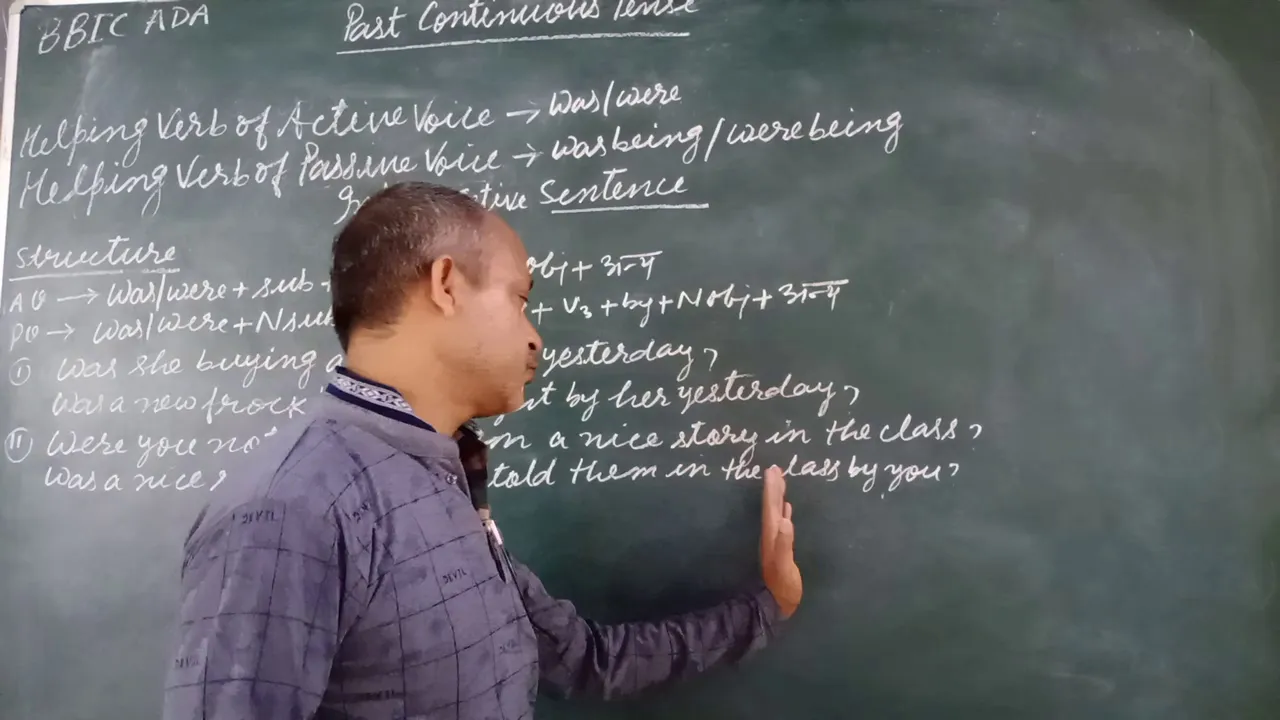 BBIC ADA
Past Continuous Tense
Helping Verb of Active Voice → was/were
Helping Verb of Passive Voice → was being/were being
Sentence
Structure
AV → was/were + sub + obj + अन्य
PV → was/were + N sub + V3 + by + N obj + अन्य
(i) was she buying a yesterday?
was a new frock by her yesterday?
(ii) were you not a nice story in the class?
was a nice told them in the class by you?
DEVIL
DEVIL